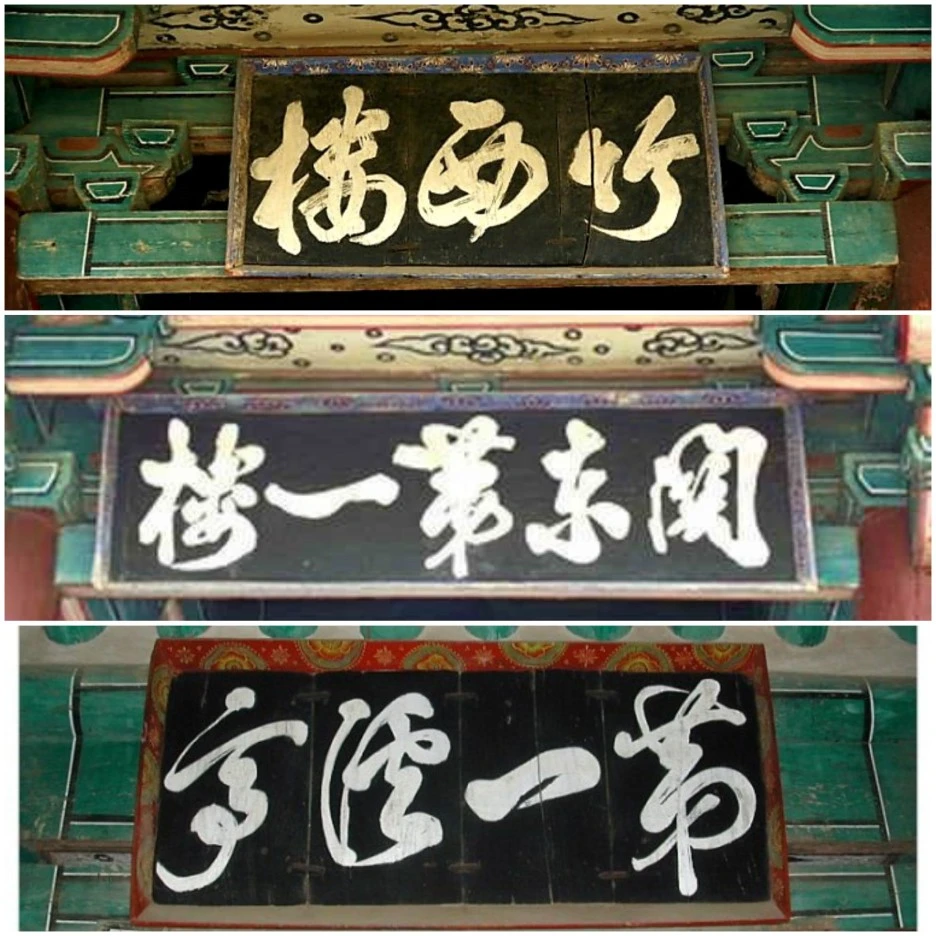 竹西樓
關東第一樓
第一溪亭